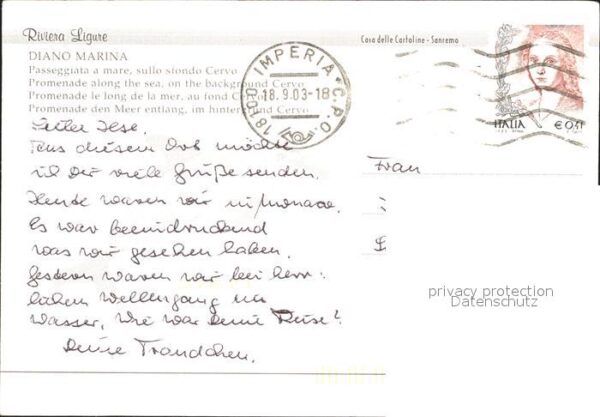 Riviera Ligure
Casa delle Cartoline - Sanremo
DIANO MARINA
Passeggiata a mare, sullo sfondo Cervo
Promenade along the sea, on the background Cervo
Promenade le long de la mer, au fond Cervo
Promenade den Meer entlang, im hintergrund Cervo
IMPERIA * C.P.O.
18.9.03-18
18.00
ITALIA
€ 0,41
Liebe Ilse.
Aus diesem Ort möchte
ich Dir viele Grüße senden.
Heute waren wir in Monaco.
Es war beeindruckend
was wir gesehen haben.
Gestern waren wir bei herr-
lichen Wellengang im
Wasser. Wie war Deine Reise?
Deine Traudchen.
Frau
privacy protection
Datenschutz